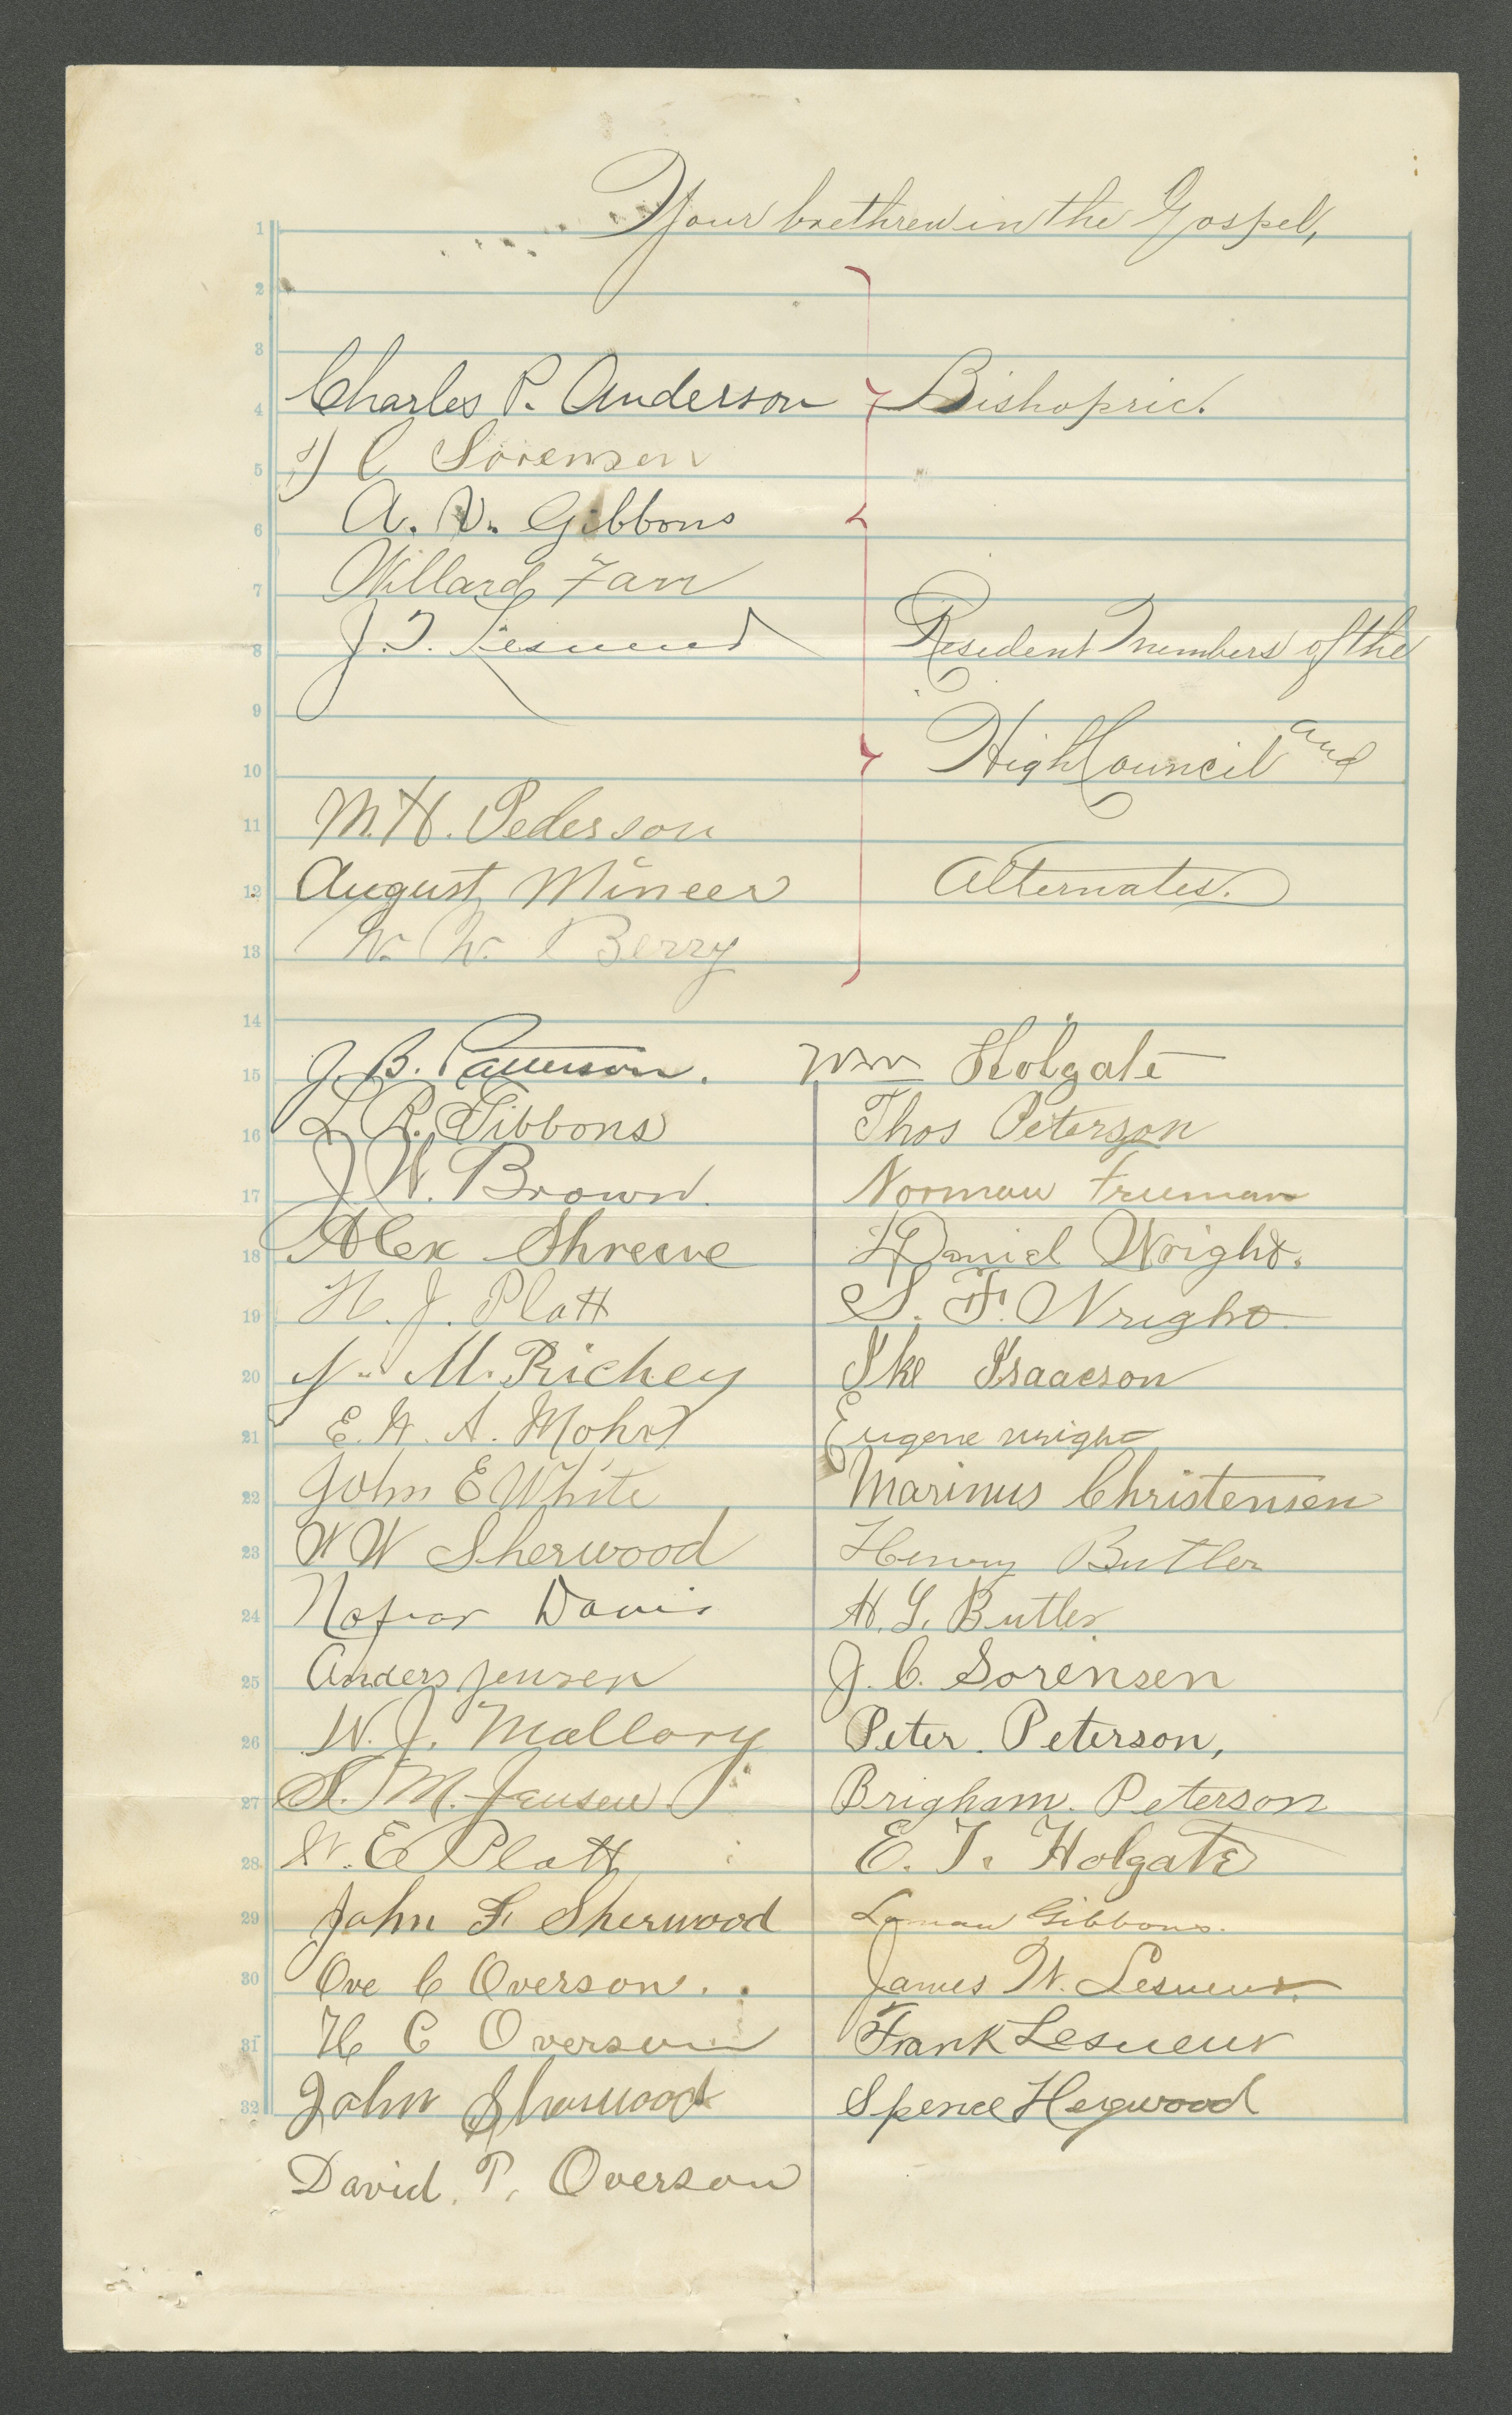 Your brethren in the Gospel,
1
2
3
4 Charles P. Anderson Bishopric.
5 C Sorensen
6 A. V. Gibbons
7 Willard Farr
8 J. T. Lesueur Resident members of the
9
10 High Council and
11 M. H. Pederson
12 August Mineer Alternates.
13 W. W. Berry
14
15 J. B. Patterson. Wm Holgate
16 L R. Gibbons Thos Peterson
17 J W. Brown. Norman Freeman
18 Alex Shreeve Daniel Wright.
19 H. J. Platt S. F. Wright
20 M. Richey Ike Isaacson
21 E. W. A. Mohr Eugene wright
22 John E White Marinus Christensen
23 W W Sherwood Henry Butler
24 Davis H. L. Butler
25 Anders Jensen J. C. Sorensen
26 W. J. Mallory Peter. Peterson,
27 S. M. Jensen Brigham. Peterson
28 W. E Platt E. T. Holgate
29 John F Sherwood Gibbons.
30 Ove C Overson. James W. Lesueur.
31 H C Overson Frank Lesueur
32 John Sherwood Spence Heywood
David. P. Overson